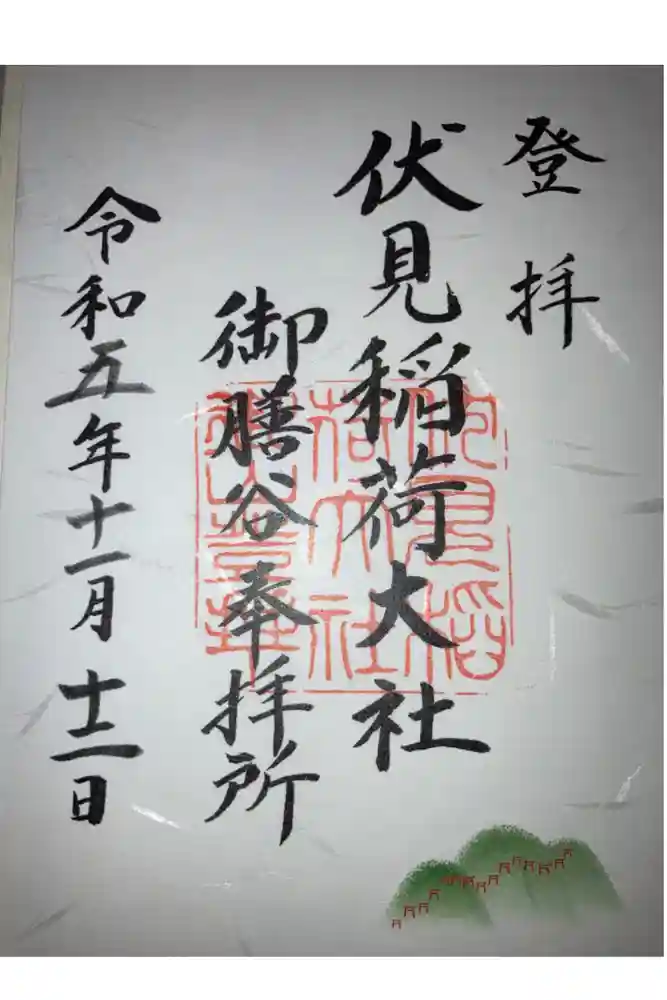 登拝
伏見稲荷大社
御膳谷奉拝所
令和五年十一月十二日